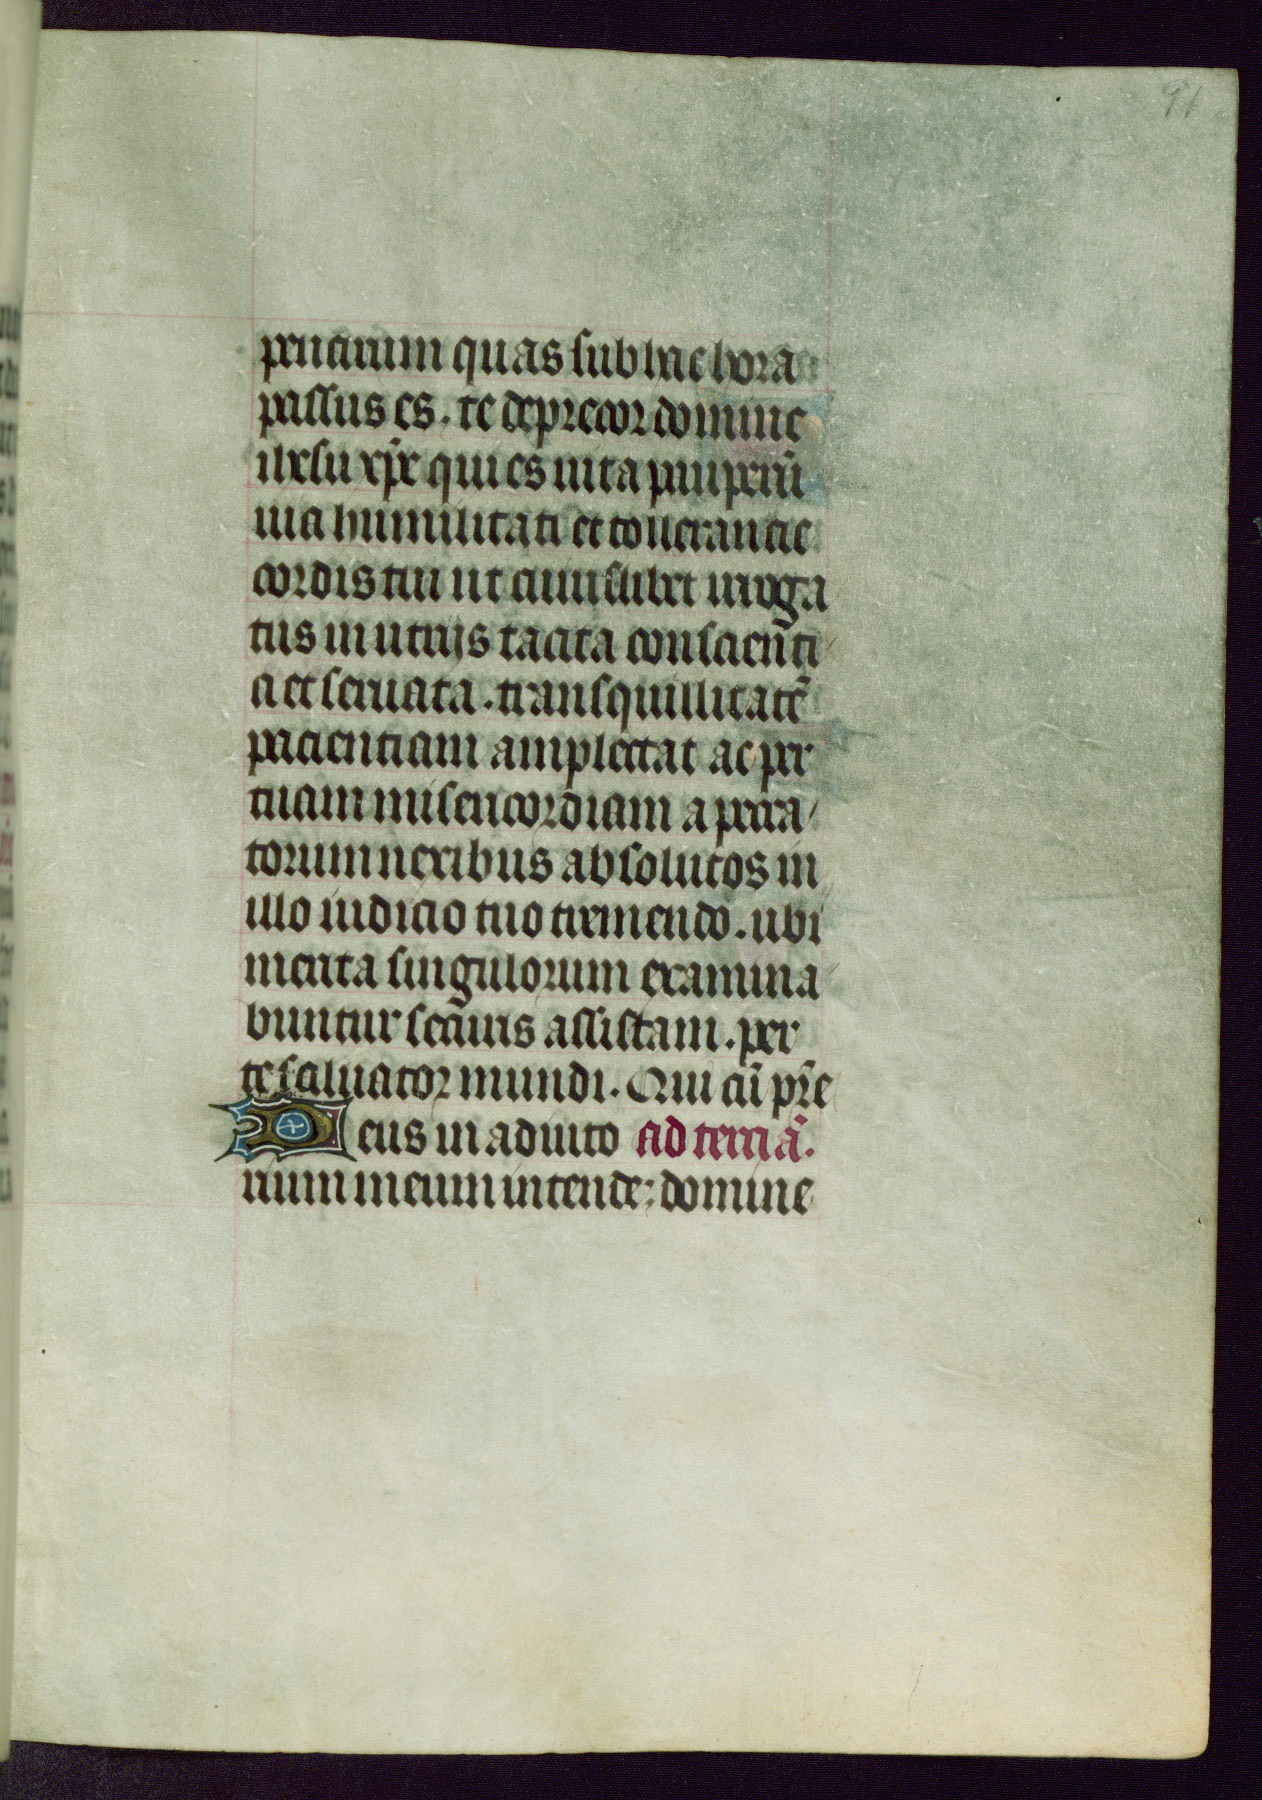 91
penarum quas sub hac hora
passus es. te deprecor domine
ihesu xp̄e qui es uita
humilitati et tollerancie
cordis tui ut irroga
tus iniurijs tacita conscienti
a et seruata. transquillitatē
pacientiam amplectat ac per
tuam misericordiam a pecca
torum nexibus absolutos in
illo iudicio tuo tremendo. ubi
merita singulorum examina
buntur assistam. per
te saluator mundi. Qui cū pr̄e
Deus in adiuto ad terciā.
rium meum intende: domine